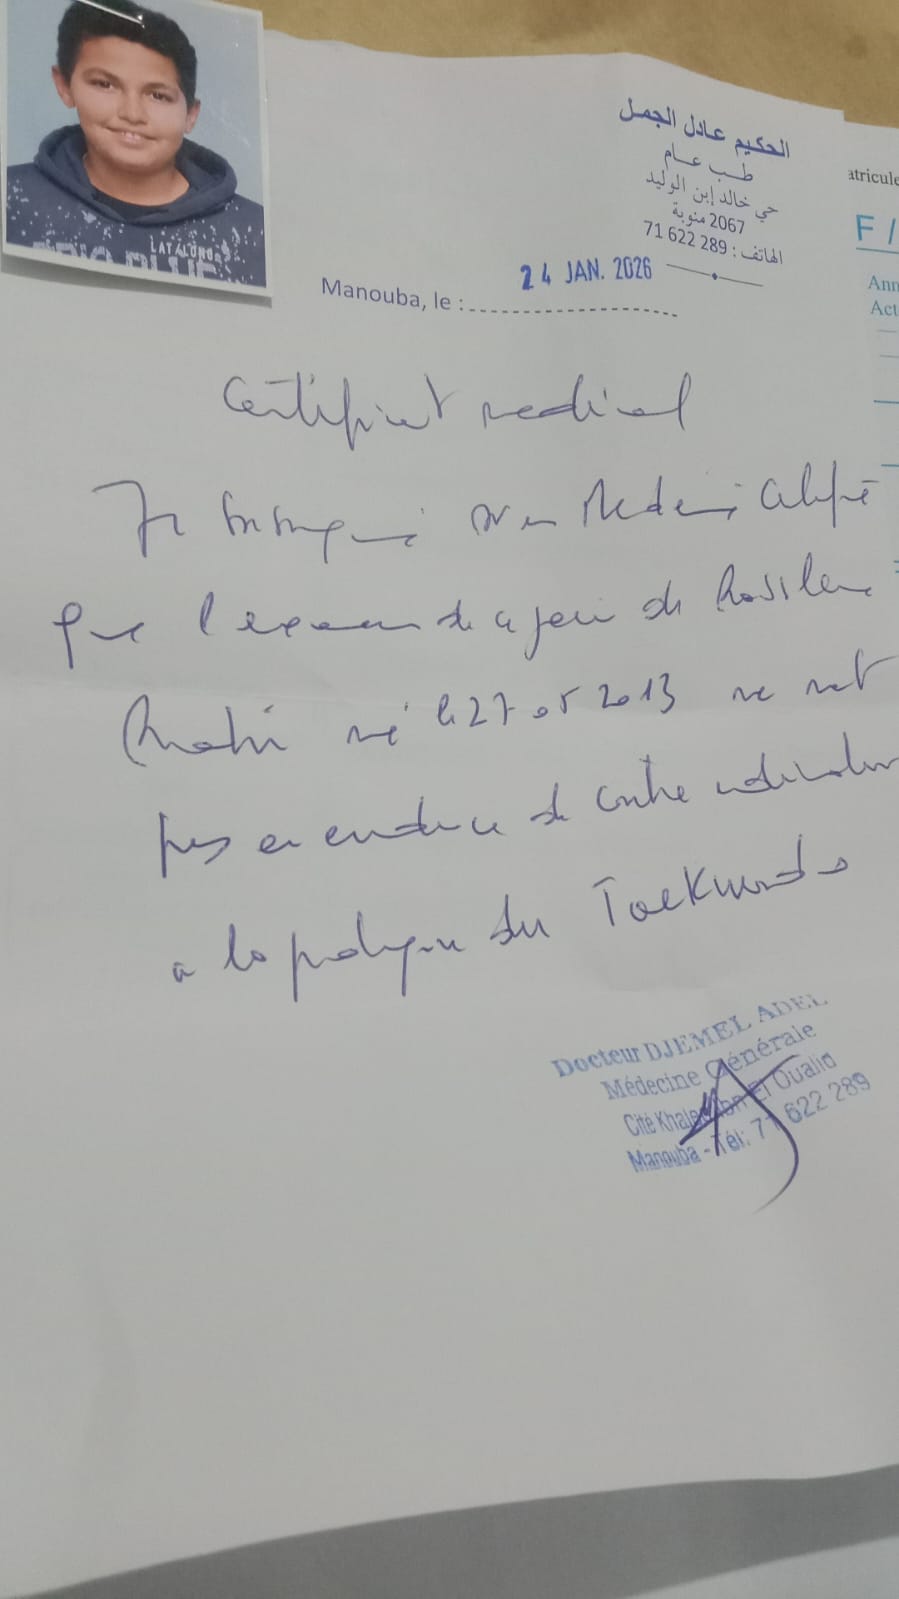 الحكيم عادل الجمل
طب عام
حي خالد إبن الوليد
2067 منوبة
الهاتف : 71 622 289
Manouba, le : 24 JAN. 2026
Certificat medical
Je soussigné Dr en Medecine certifie
que l'examen de ce jour de
né le 27 05 2013 ne met
pas en evidence de contre indication
a la pratique du Taekwondo
Docteur DJEMEL ADEL
Médecine Générale
Cité Khaled Ibn El Oualid
Manouba - Tél: 71 622 289
LATALONG
atricule
F /
Ann
Act